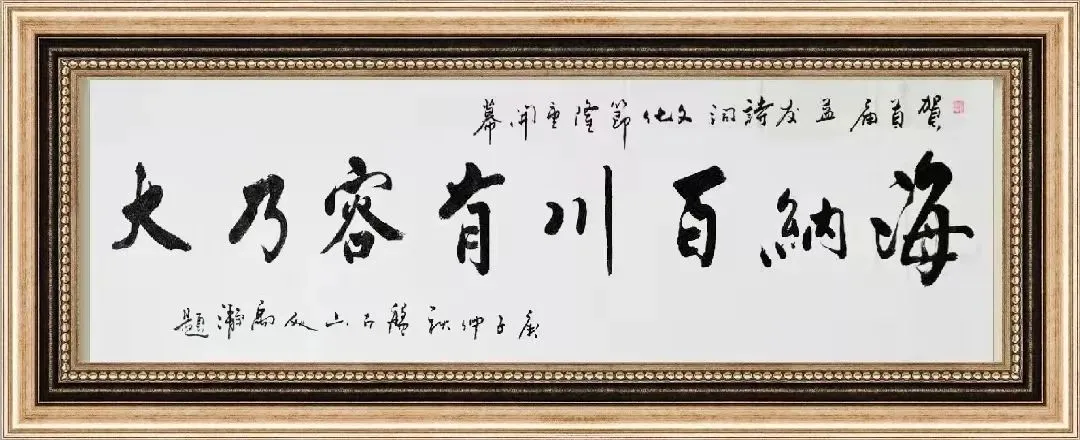 賀首届益友詩詞文化節隆重開幕
海納百川有容乃大
庚子仲秋 山人 題